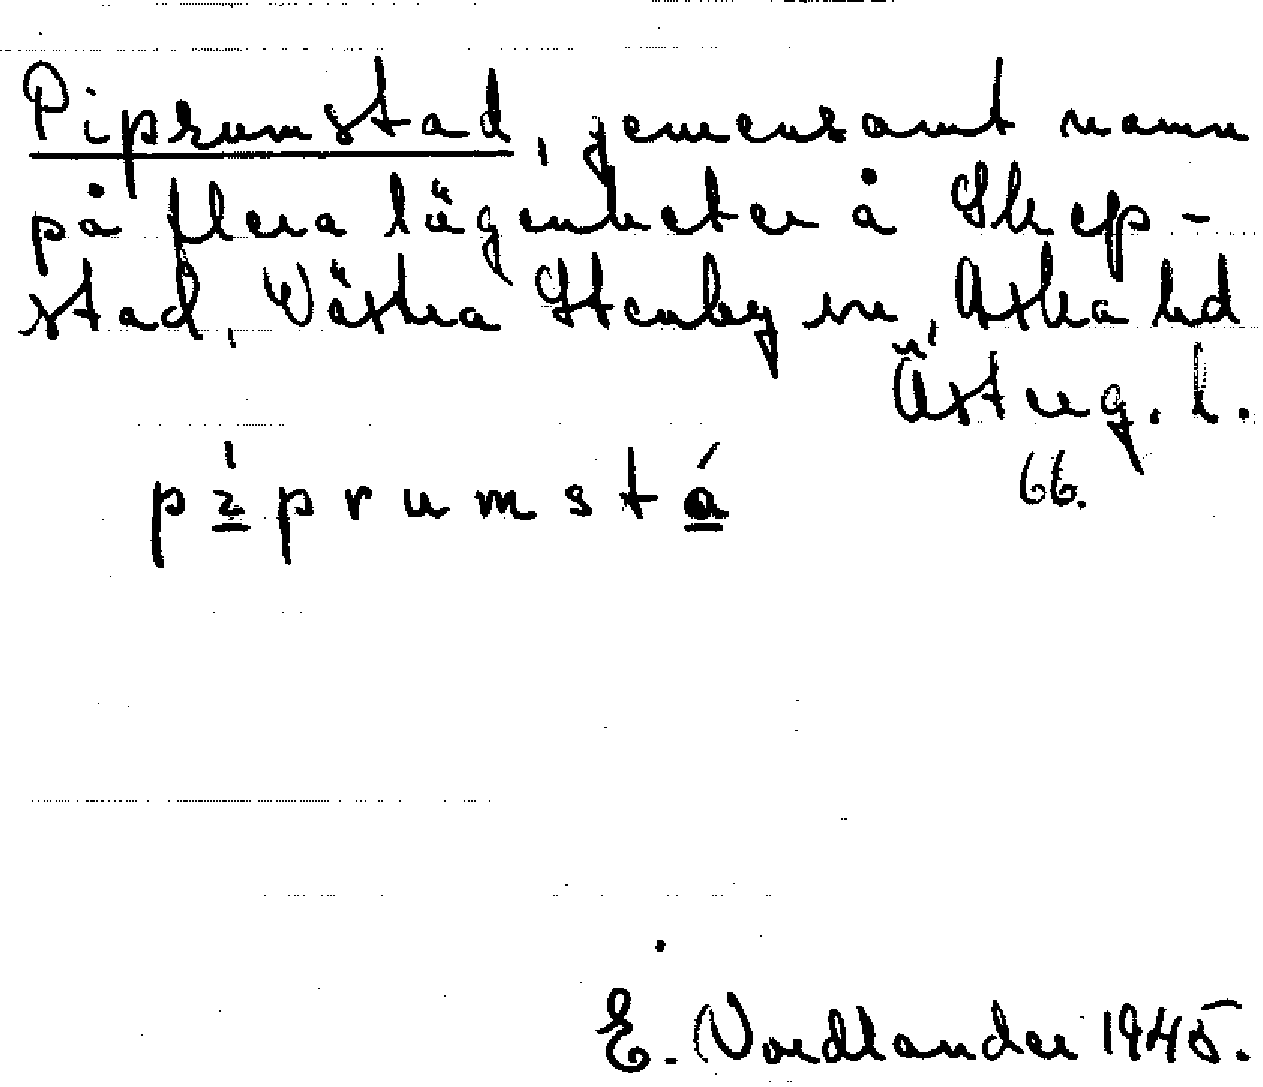 Piprumstad, gemensamt namn
på flera lägenheter å Skep-
stad, Västra Stenby sn, Aska hd
Österg. l.
66.
prumstá
E. Nordlander 1945.